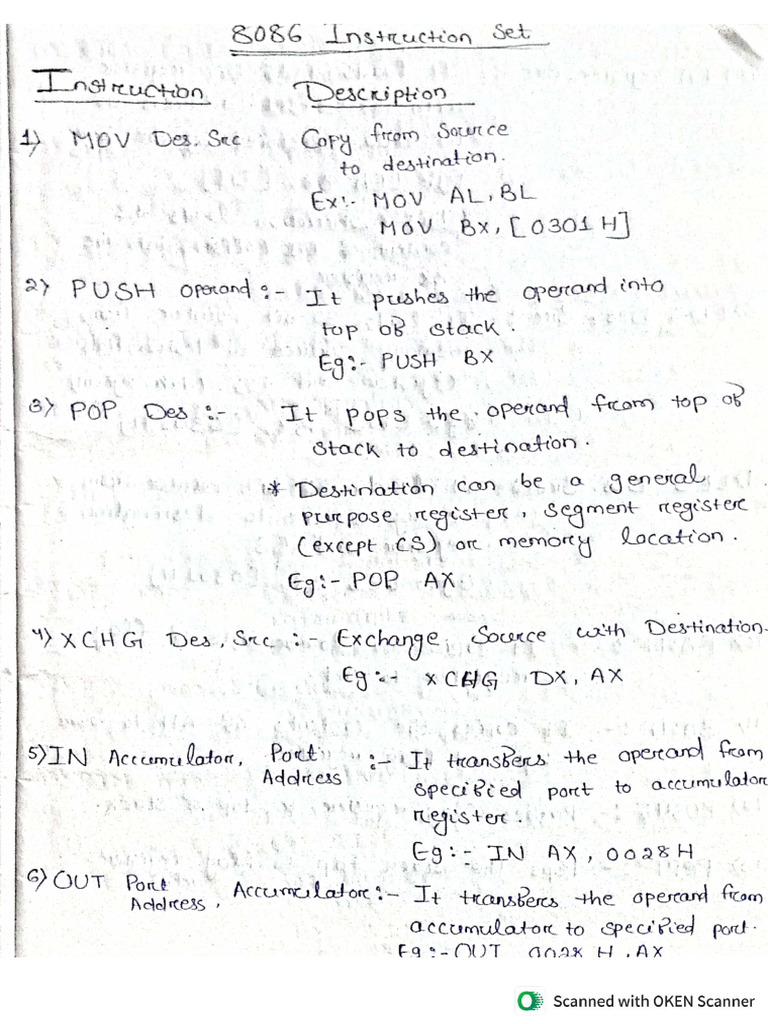 8086 Instruction Set
Instruction Description
1) MOV Des. Src Copy from Source
to destination.
Ex:- MOV AL, BL
MOV BX, [0301 H]
2) PUSH operand :- It pushes the operand into
top of stack.
Eg:- PUSH BX
3) POP Des :- It pops the operand from top of
stack to destination.
* Destination can be a general
purpose register, segment register
(except CS) or memory location.
Eg:- POP AX.
4) XCHG Des, Src :- Exchange Source with Destination.
Eg:- XCHG DX, AX
5) IN Accumulator, Port Address :- It transfers the operand from
specified port to accumulator
register.
Eg:- IN AX, 0028 H
6) OUT Port Address, Accumulator :- It transfers the operand from
accumulator to specified port.
Eg:- OUT 0028 H, AX
Scanned with OKEN Scanner